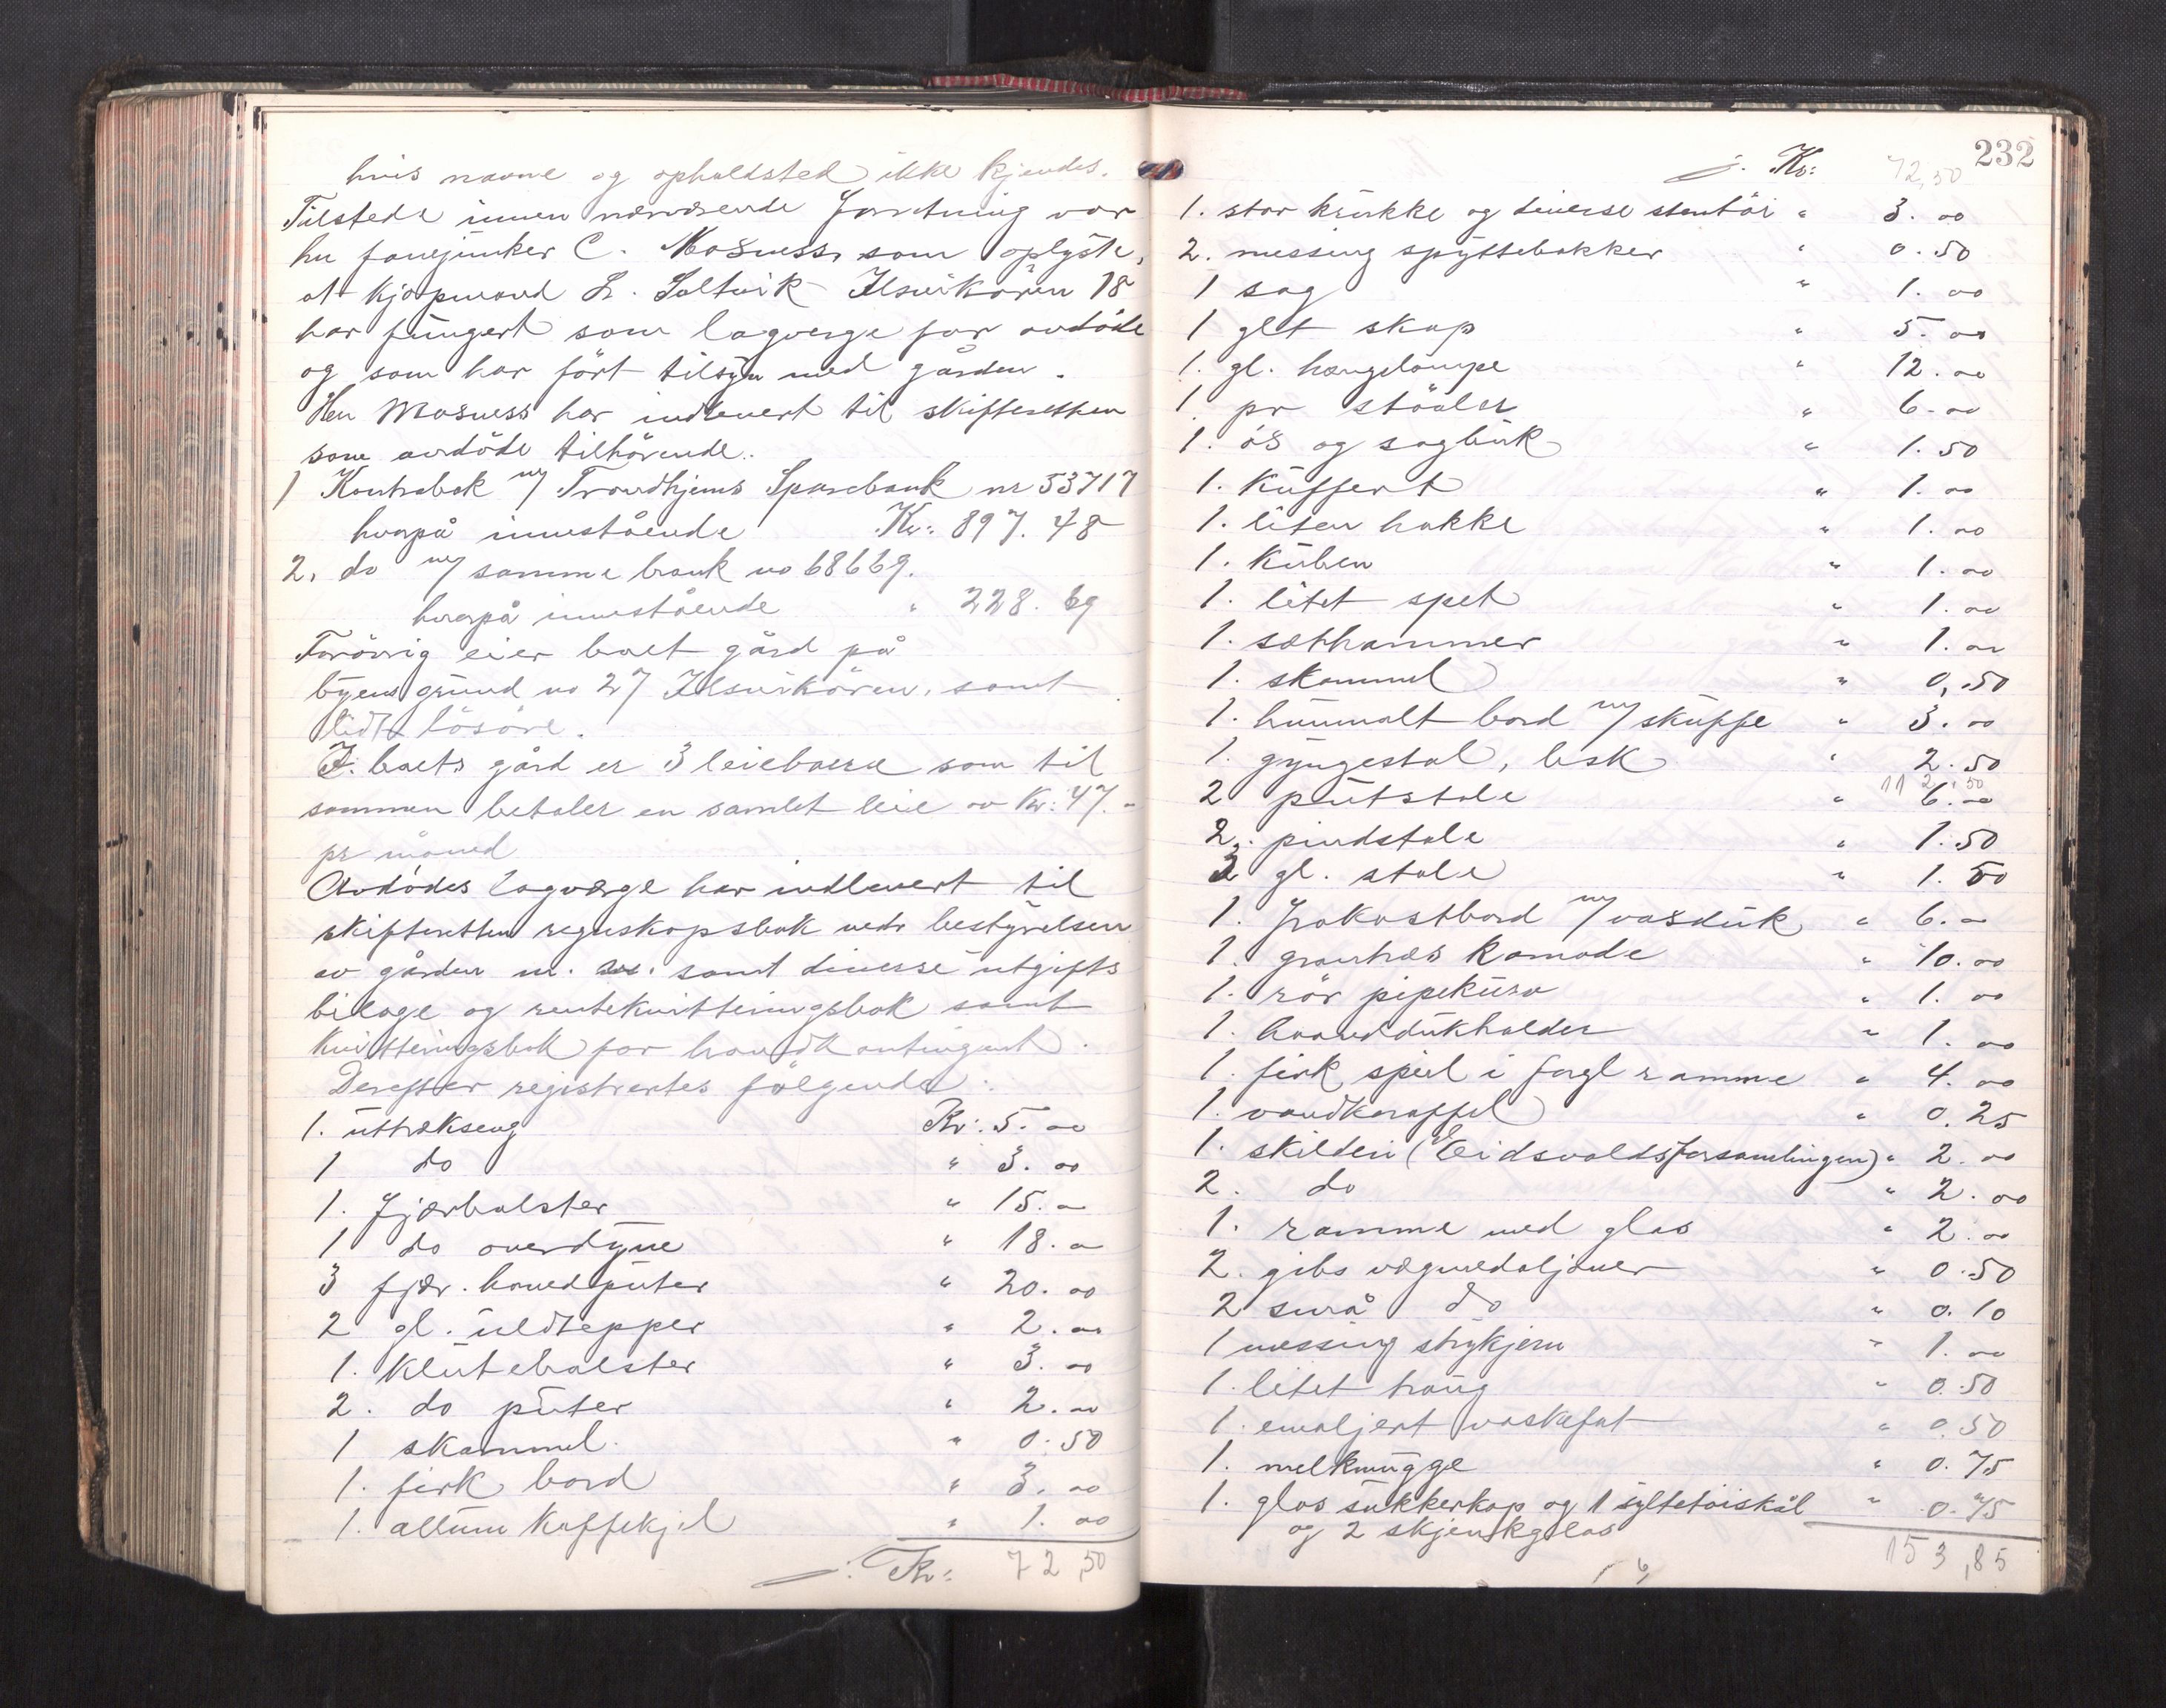 hvis navne og opholdsted ikke kjendes.
Tilstede innen nærværende forretning var
hr fanejunker C. Mosness som oplyste,
at kjøpmand L. Saltvik Ilsvikøren 18
har fungert som lagverge for avdøde
og som har ført tilsyn med gården.
Herr Mosness har indlevert til skifteretten
som avdøde tilhørende.
1 Kontrabok m/ Trondhjems Sparebank nr 53717
hvorpå innestående Kr: 897. 48
2, do m/ samme bank no 68669.
hvorpå innestående " 228. 69
Forøvrig eier boet gård på
byens grund no 27 Ilsvikøren, samt
lidt løsøre.
I boets gård er 3 leieboere som til
sammen betaler en samlet leie av Kr: 47.-
pr måned
Avdødes lagverge har indlevert til
skifteretten regnskapsbok vedr bestyrelsen
av gården m. m. samt diverse utgifts
bilage og rentekvitteringsbok samt
Kvitteringsbok for brandkontingent.
Derefter registrertes følgende:
1. uttrækseng Kr: 5. 00
1 do " 3. 00
1. fjærbolster " 15. 00
1 do overdyne " 18. 00
3 fjær. hovedputer " 20. 00
2 gl. uldtepper " 2. 00
1. Klutebolster " 3. 00
2. do puter " 2. 00
1 skammel. " 0. 50
1. firk bord " 3. 00
1. allum kaffekjel " 1. 00
Kr: 72,50
232
Kr: 72,50
1. stor krukke og diverse stentøi " 3. 00
2. messing spyttebakker " 0. 50
1 sag " 1. 00
1 glt skap " 5. 00
1. gl. hengelampe " 12. 00
1. pr støvler " 6. 00
1. øs og sagbuk " 1. 50
1. Kuffert " 1. 00
1. liten hakke " 1. 00
1. Kuben " 1. 00
1. litet spet " 1. 00
1. setthammer " 1. 00
1. skammel " 0,.50
1. hummalt bord m/ skuffe " 3. 00
1. gyngestol, besk " 2. 50
112,50
2 putstole " 6. 00
2. pindstole " 1. 50
2 gl. stole " 1. 50
1. frokostbord m/ voksduk " 6. 00
1. grantræs Komode " 10. 00
1. rør pipekurv " 1. 00
1. haanddukholder " 1. 00
1. firk speil i forgl ramme " 4. 00
1. vandkaraffel " 0. 25
1. skilderi (Eidsvoldsforsamlingen) " 2. 00
2. do " 2. 00
1. ramme med glas " 2. 00
2. gibs vægmedaljoner " 0. 50
2 små do " 0. 10
1 messing strykjern " 1. 00
1. litet traug " 0. 50
1. emaljert vaskefat " 0. 50
1. melkmugge " 0. 75
1. glas sukkerkop og 1 syltetøiskål " 0. 75
og 2 skjenkglas
153,85